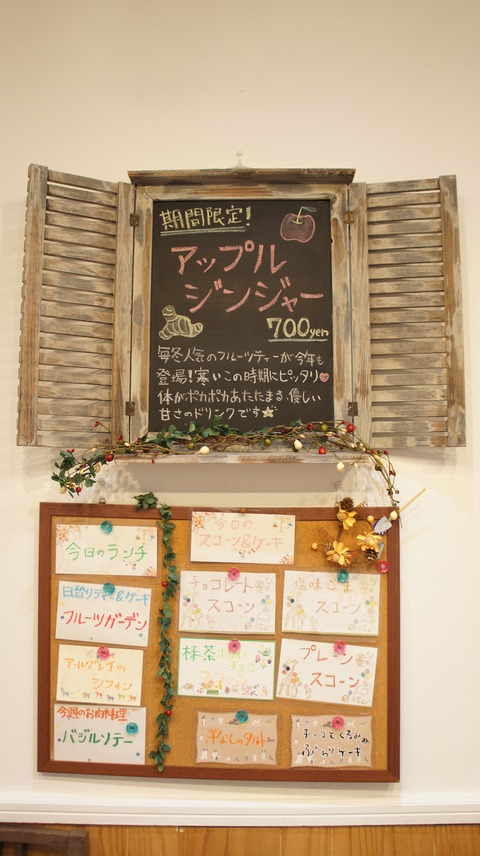 期間限定!
アップル
ジンジャー
700yen
毎冬人気のフルーツティーが今年も
登場!寒いこの時期にピッタリ
体がポカポカあたたまる、優しい
甘さのドリンクです
今日のランチ
日替りティー&ケーキ
・フルーツガーデン
アールグレイの
シフォン
今週のお肉料理
・バジルソテー
今日の
スコーン&ケーキ
チョコレート
スコーン
塩味ごま
スコーン
抹茶
プレーン
スコーン
洋なしのタルト
チョコとくるみの
ふんわりケーキ